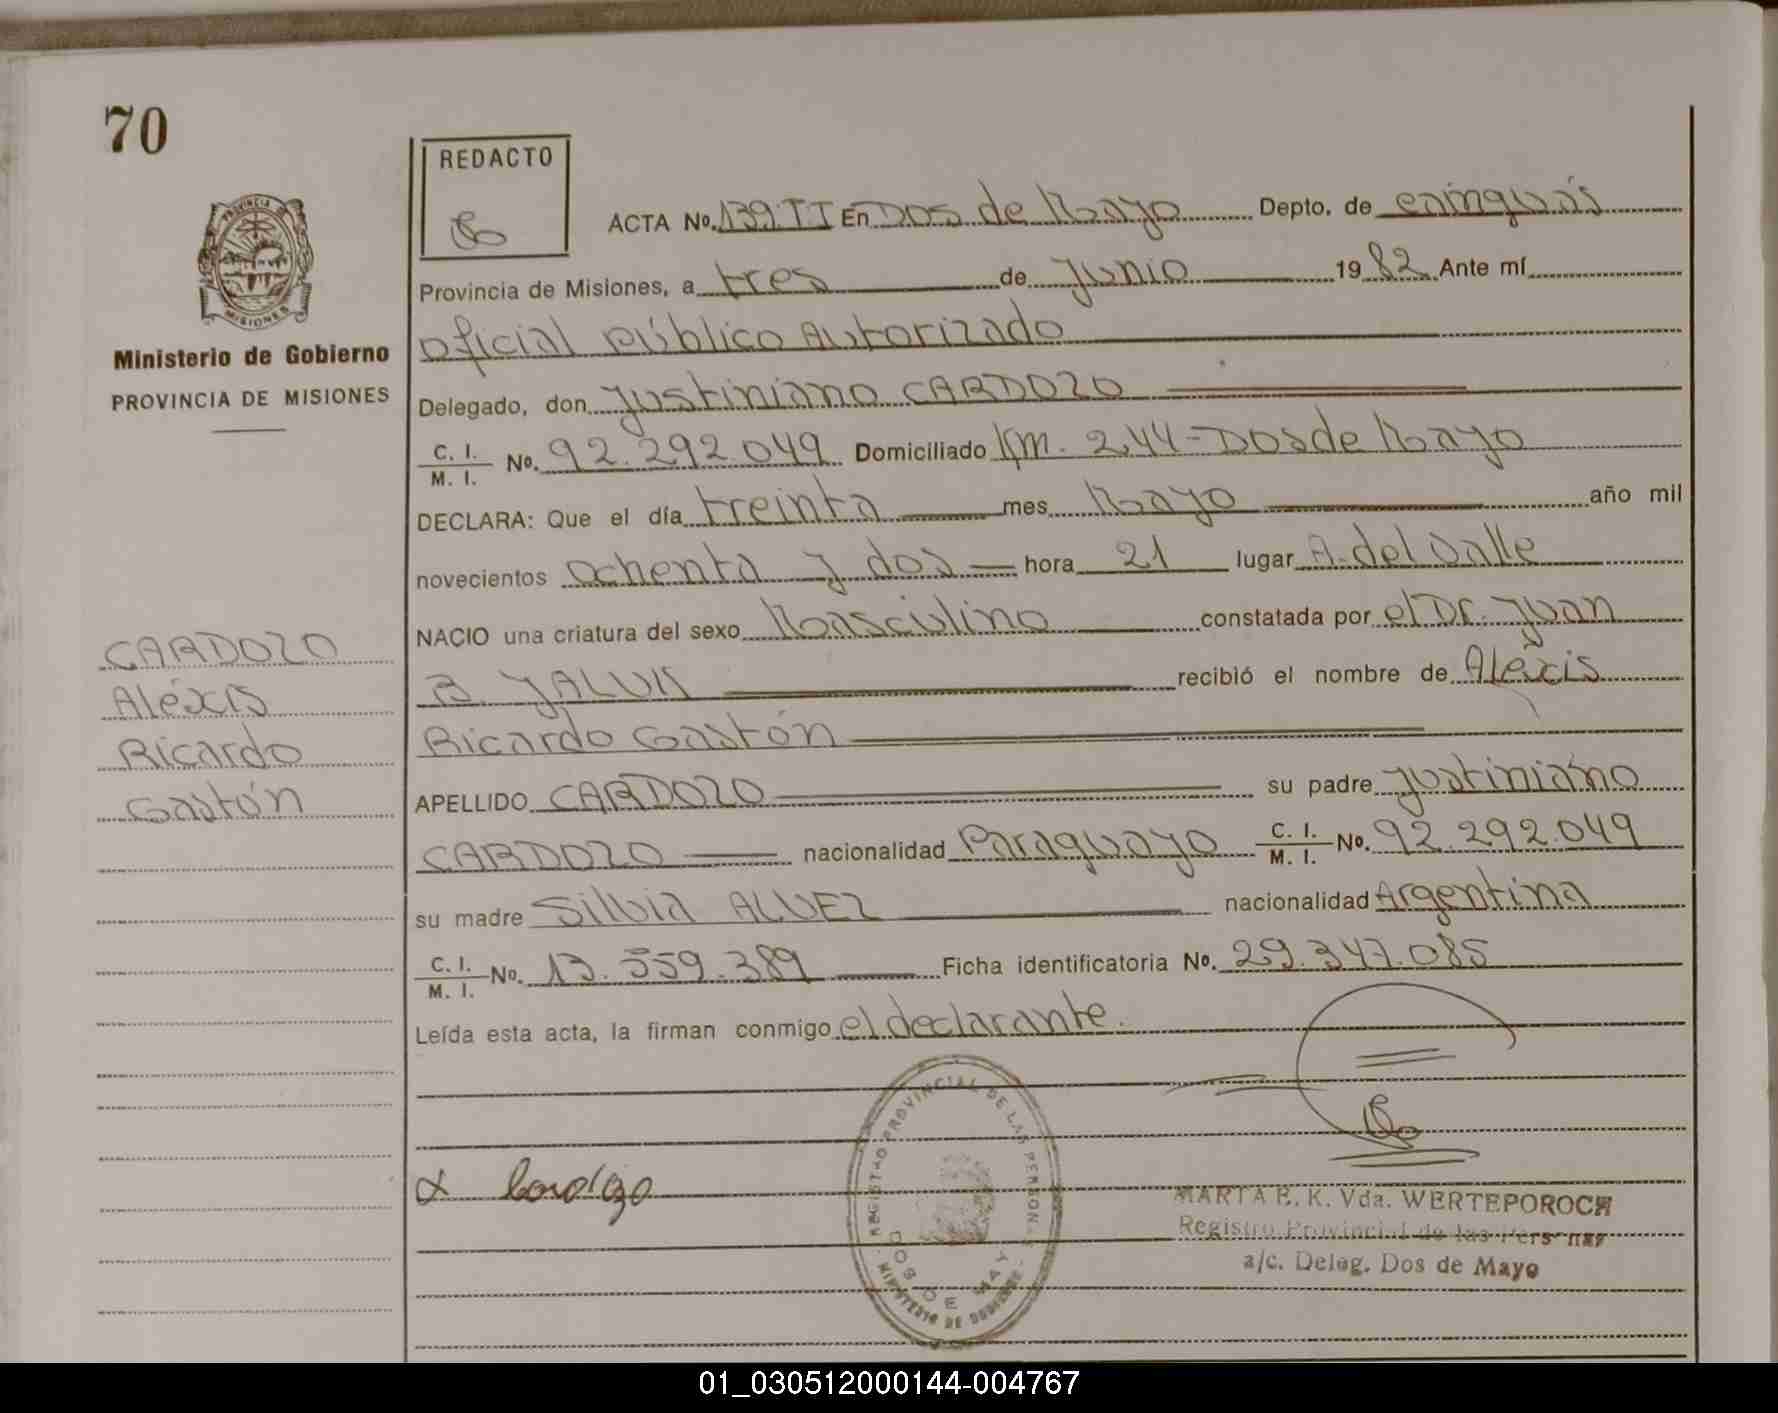 70
REDACTO
PROVINCIA DE
MISIONES
Ministerio de Gobierno
PROVINCIA DE MISIONES
ACTA No. 139.TI En Dos de Mayo Depto. de Cainguás
Provincia de Misiones, a tres de Junio 1982 Ante mí
Oficial Público Autorizado
Delegado, don Justiniano CARDOZO
C. I. / M. I. No. 92.292.049 Domiciliado Km. 244-Dos de Mayo
DECLARA: Que el día treinta mes Mayo año mil
novecientos ochenta y dos hora 21 lugar A. del Valle
NACIO una criatura del sexo Masculino constatada por el Dr. Juan
B. YALUK recibió el nombre de Aléxis
Ricardo Gastón
APELLIDO CARDOZO su padre Justiniano
CARDOZO nacionalidad Paraguayo C. I. / M. I. No. 92.292.049
su madre Silvia ALVEZ nacionalidad Argentina
C. I. / M. I. No. 13.559.389 Ficha identificatoria No. 29.347.085
Leída esta acta, la firman conmigo el declarante.
CARDOZO
Aléxis
Ricardo
Gastón
REGISTRO PROVINCIAL DE LAS PERSON
DOS DE MAYO
MINISTERIO DE GOBIERNO
Cardozo
MARTA E. K. Vda. WERTEPOROCH
Registro Provincial de las Personas
a/c. Deleg. Dos de Mayo
01_030512000144-004767